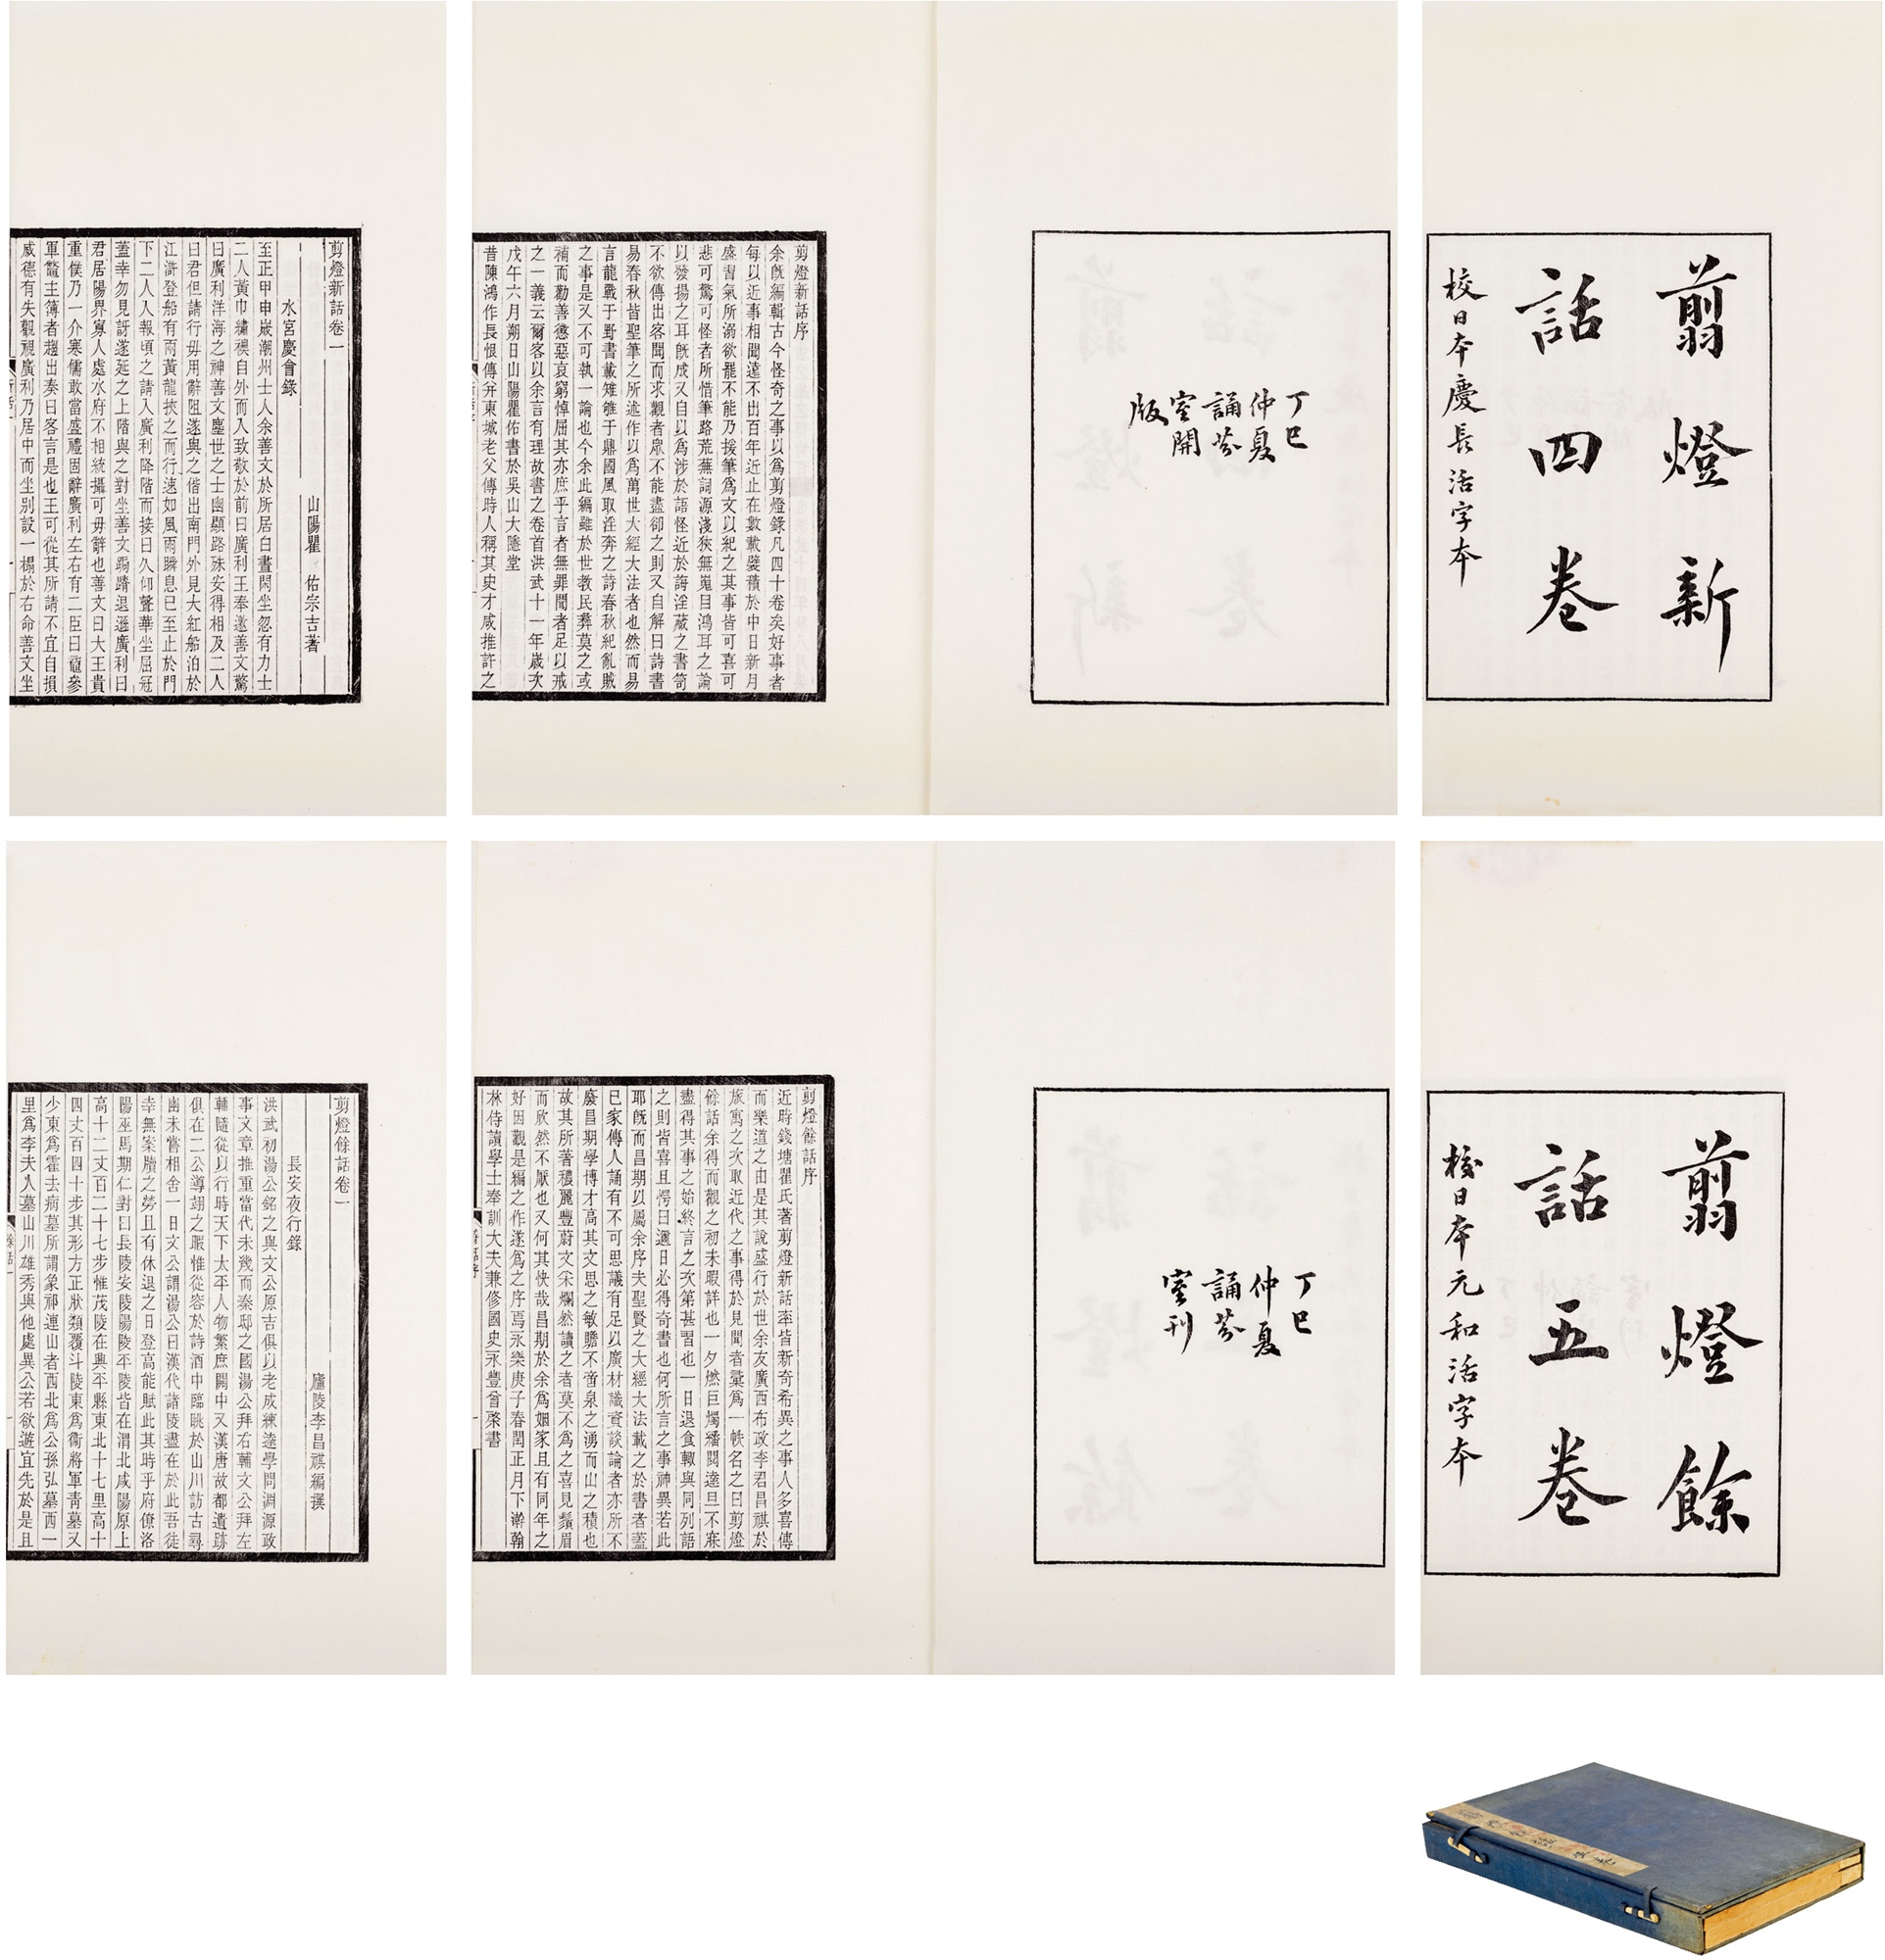 翦燈新
話四卷
校日本慶長活字本
丁巳
仲夏
誦芬
室開
版
剪燈新話序
余旣編輯古今怪奇之事以爲剪燈錄凡四十卷矣好事者
每以近事相聞遠不出百年近止在數載襞積於中日新月
盛習氣所溺欲罷不能乃援筆爲文以紀之其事皆可喜可
悲可驚可怪者所惜筆路荒蕪詞源淺狹無嵬目鴻耳之論
以發揚之耳旣成又自以爲涉於語怪近於誨淫藏之書笥
不欲傳出客聞而求觀者衆不能盡卻之則又自解曰詩書
易春秋皆聖筆之所述作以爲萬世大經大法者也然而易
言龍戰于野書載雉雊于鼎國風取淫奔之詩春秋紀亂賊
之事是又不可執一論也今余此編雖於世敎民彝莫之或
補而勸善懲惡哀窮悼屈其亦庶乎言者無罪聞者足以戒
之一義云爾客以余言有理故書之卷首洪武十一年歲次
戊午六月朔日山陽瞿佑書於吳山大隱堂
昔陳鴻作長恨傳幷東城老父傳時人稱其史才咸推許之
剪燈新話卷一
山陽瞿 佑宗吉著
水宮慶會錄
至正甲申歲潮州士人余善文於所居白晝閑坐忽有力士
二人黃巾繡襖自外而入致敬於前曰廣利王奉邀善文驚
曰廣利洋海之神善文塵世之士幽顯路殊安得相及二人
曰君但請行毋用辭阻遂與之偕出南門外見大紅船泊於
江滸登船有兩黃龍挾之而行速如風雨瞬息已至止於門
下二人入報頃之請入廣利降階而接曰久仰聲華坐屈冠
蓋幸勿見訝遂延之上階與之對坐善文跼蹐退遜廣利曰
君居陽界寡人處水府不相統攝可毋辭也善文曰大王貴
重僕乃一介寒儒敢當盛禮固辭廣利左右有二臣曰黿參
軍鼈主簿者趨出奏曰客言是也王可從其所請不宜自損
威德有失觀視廣利乃居中而坐别設一榻於右命善文坐
翦燈餘
話五卷
校日本元和活字本
丁巳
仲夏
誦芬
室刊
剪燈餘話序
近時錢塘瞿氏著剪燈新話率皆新奇希異之事人多喜傳
而樂道之由是其說盛行於世余友廣西布政李君昌祺於
旅寓之次取近代之事得於見聞者彙爲一帙名之曰剪燈
餘話余得而觀之初未暇詳也一夕燃巨燭繙閱達旦不寐
盡得其事之始終言之次第甚習也一日退食輒與同列語
之則皆喜且愕曰邇日必得奇書也何所言之事神異若此
耶旣而昌期以屬余序夫聖賢之大經大法載之於書者蓋
已家傳人誦有不可思議有足以廣材識資談論者亦所不
廢昌期學博才高其文思之敏贍不啻泉之湧而山之積也
故其所著穠麗豐蔚文采爛然讀之者莫不爲之喜見鬚眉
而欣然不厭也又何其快哉昌期於余爲姻家且有同年之
好因觀是編之作遂爲之序焉永樂庚子春閏正月下澣翰
林侍讀學士奉訓大夫兼修國史永豐曾棨書
剪燈餘話卷一
廬陵李昌祺編撰
長安夜行錄
洪武初湯公銘之與文公原吉俱以老成練達學問淵源政
事文章推重當代未幾而秦邸之國湯公拜右輔文公拜左
輔隨從以行時天下太平人物繁庶關中又漢唐故都遺跡
俱在二公導翊之暇惟從容於詩酒中臨眺於山川訪古尋
幽未嘗相舍一日文公謂湯公曰漢代諸陵盡在於此吾徒
幸無案牘之勞且有休退之日登高能賦此其時乎府僚洛
陽巫馬期仁對曰長陵安陵陽陵平陵皆在渭北咸陽原上
高十二丈百二十七步惟茂陵在興平縣東北十七里高十
四丈百四十步其形方正狀類覆斗陵東爲衞將軍靑墓又
少東爲霍去病墓所謂象祁連山者西北爲公孫弘墓西一
里爲李夫人墓山川雄秀與他處異公若欲遊宜先於是且